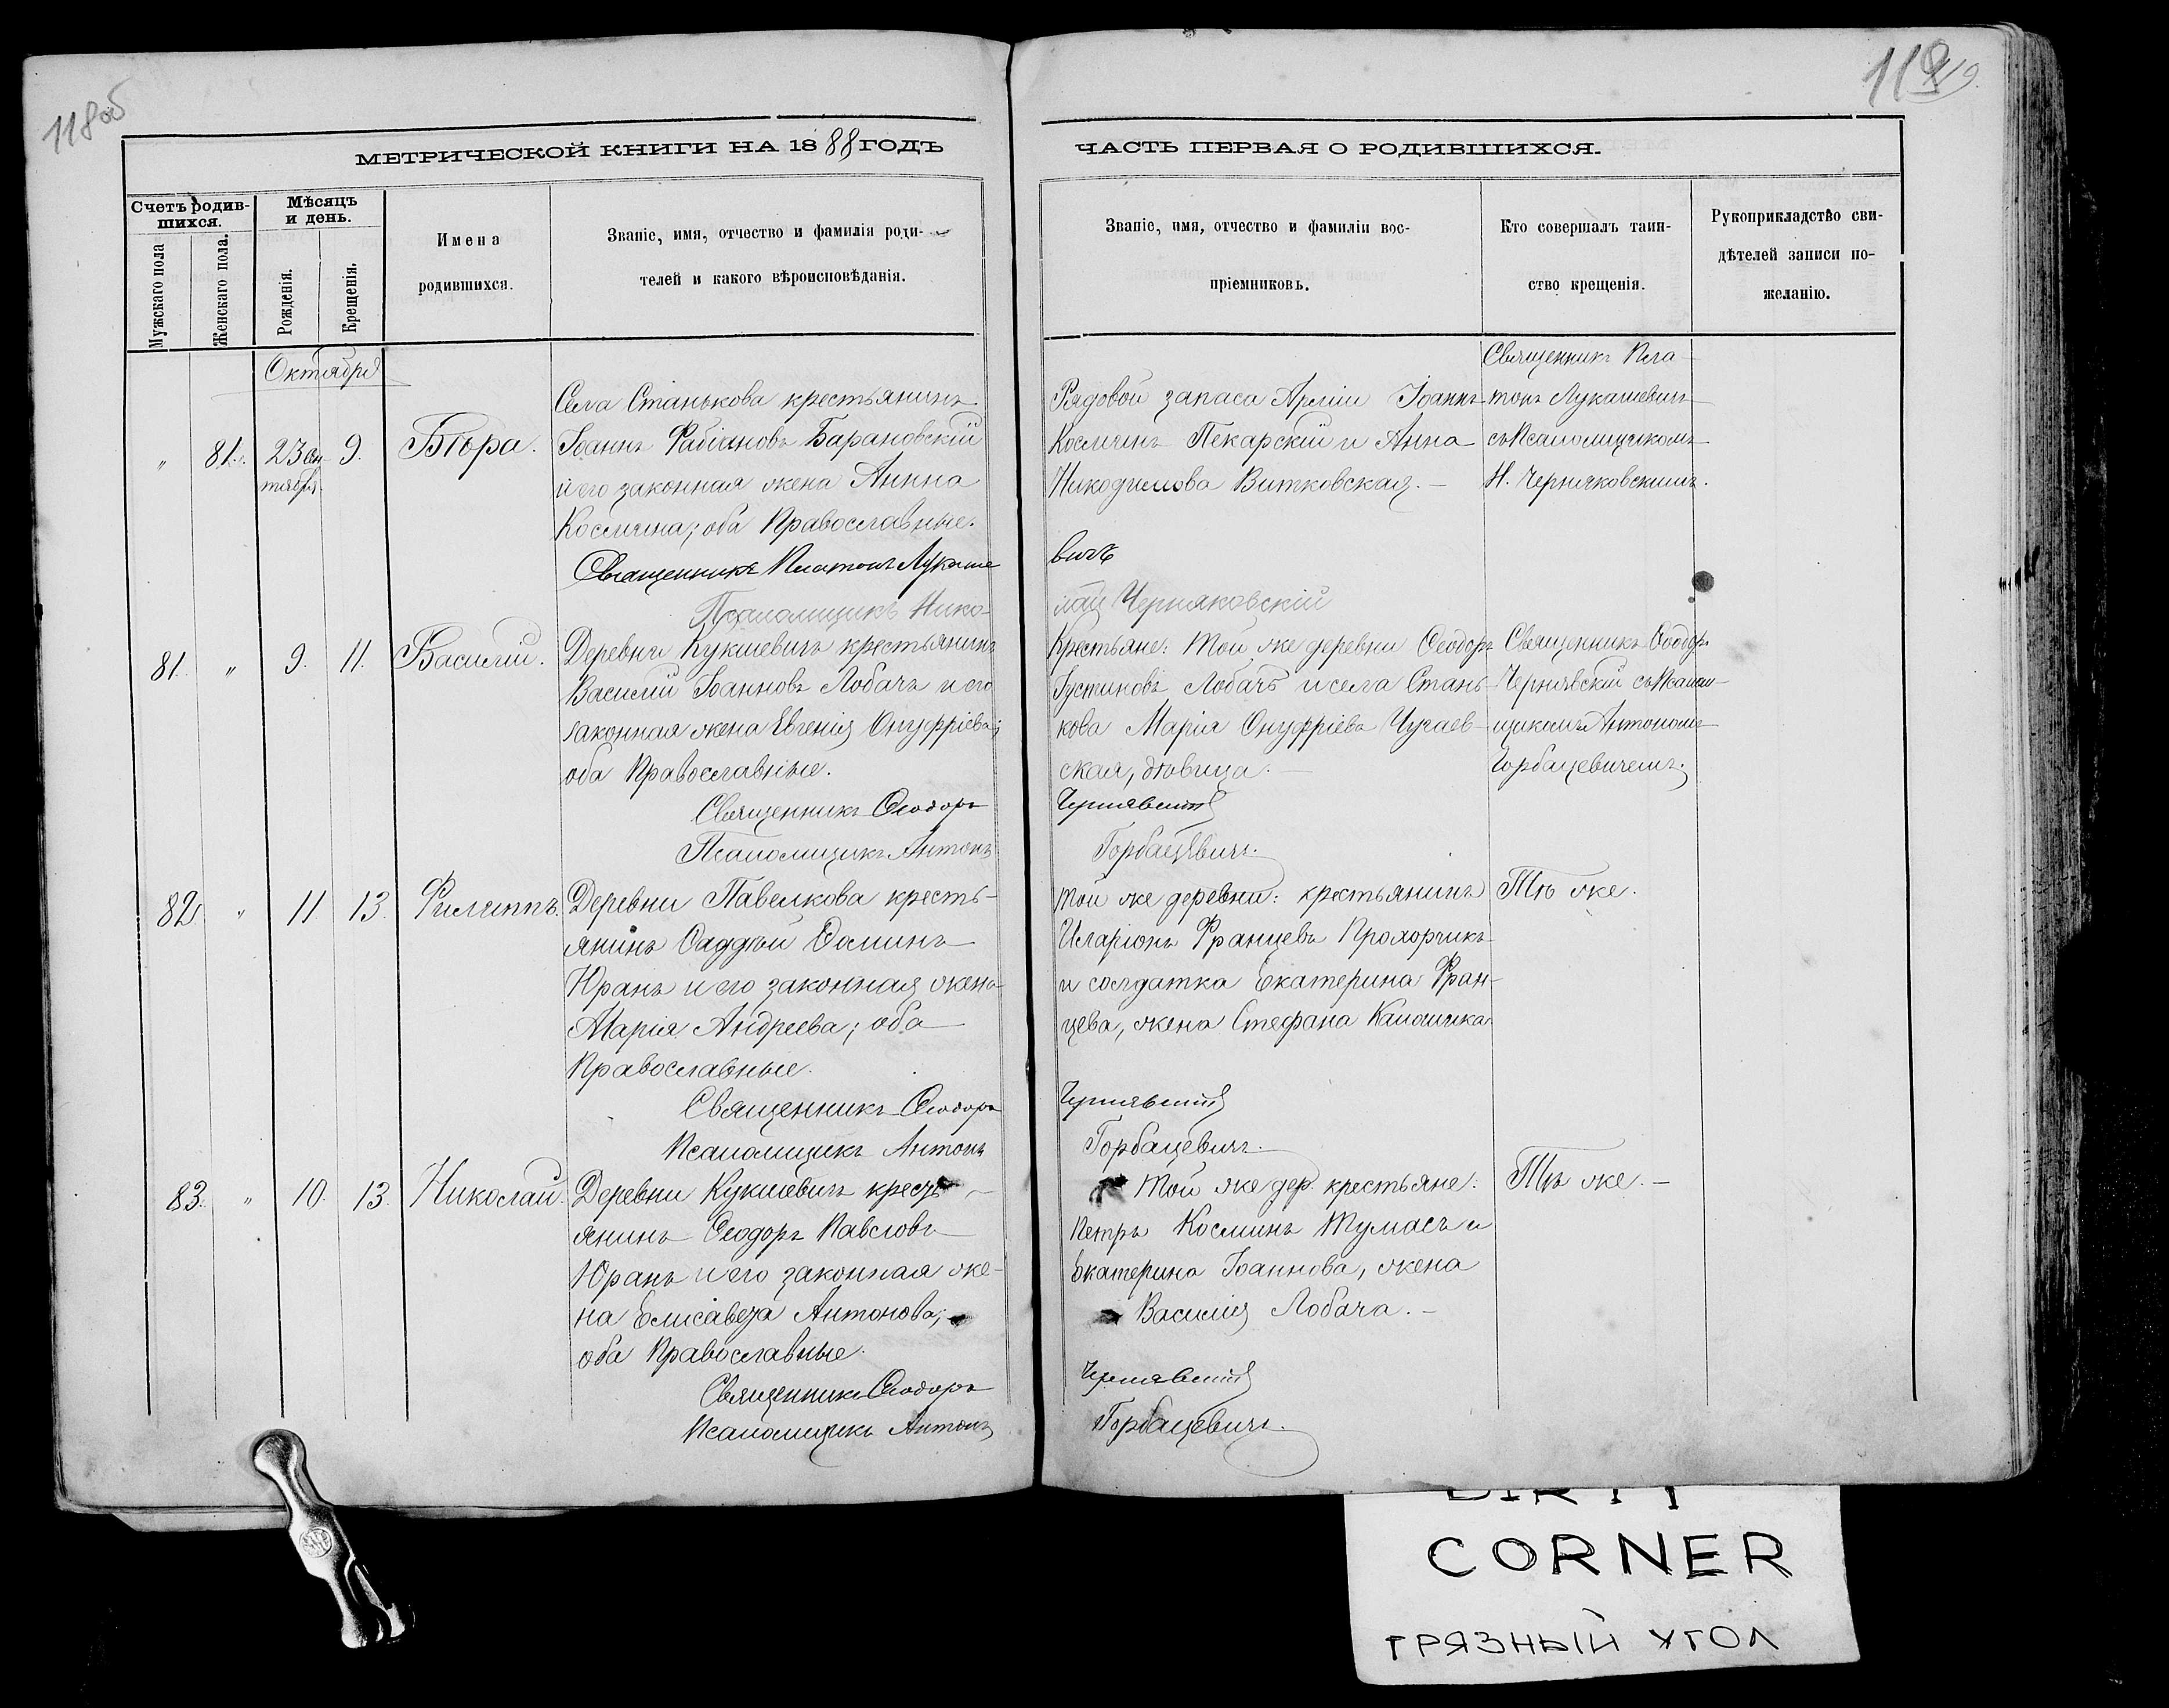 118об
119
МЕТРИЧЕСКОЙ КНИГИ НА 1888 ГОДЪ
Счетъ родив-
шихся.
Мужскаго пола
Женскаго пола.
Мѣсяцъ
и день.
Рожденія.
Крещенія.
Имена
родившихся.
Званіе, имя, отчество и фамилія роди-
телей и какого вѣроисповѣданія.
ЧАСТЬ ПЕРВАЯ О РОДИВШИХСЯ.
Званіе, имя, отчество и фамиліи вос-
пріемниковъ.
Кто совершалъ таин-
ство крещенія.
Рукоприкладство сви-
дѣтелей записи по-
желанію.
Октября
„ 81. 23 Сен- 9. Вѣра.
тября.
Села Станькова крестьянинъ
Іоаннъ Фабіановъ Барановскій
и его законная жена Анна
Космина; оба Православные.
Священникъ Платонъ Лукаше
Псаломщикъ Нико-
Рядовой запаса Арміи Іоаннъ
Косминъ Пекарскій и Анна
Никодимова Витковская. —
вичъ
лай Черняковскій
Священникъ Пла-
тонъ Лукашевичъ
съ Псаломщикомъ
Н. Черняковскимъ.
81. „ 9. 11. Василій.
Деревни Кукшевичъ крестьянинъ
Василій Іоанновъ Лобачъ и его
законная жена Евгенія Онуфріева;
оба Православные.
Священникъ Ѳеодоръ
Псаломщикъ Антонъ
Крестьяне: той же деревни Ѳеодоръ
Іустиновъ Лобачъ и села Стань-
кова Марія Онуфріева Чучаев-
ская, дѣвица. —
Чернявскій
Горбацевичъ.
Священникъ Ѳеодоръ
Чернявскій съ Псалом-
щикомъ Антономъ
Горбацевичемъ.
82. „ 11. 13. Филиппъ.
Деревни Павелкова кресть-
янинъ Ѳаддей Ѳоминъ
Юранъ и его законная жена
Марія Андреева; оба
Православные.
Священникъ Ѳеодоръ
Псаломщикъ Антонъ
Той же деревни: крестьянинъ
Иларіонъ Францевъ Прохорчикъ
и солдатка Екатерина Фран-
цева, жена Стефана
Чернявскій
Горбацевичъ.
Тѣ же.
83. „ 10. 13. Николай.
Деревни Кукшевичъ кресть-
янинъ Ѳеодоръ Павловъ
Юранъ и его законная же-
на Елисавета Антонова;
оба Православные.
Священникъ Ѳеодоръ
Псаломщикъ Антонъ
Той же дер. крестьяне:
Петръ Косминъ Тумасъ и
Екатерина Іоаннова, жена
Василія Лобача. —
Чернявскій
Горбацевичъ.
Тѣ же. —
CORNER
ГРЯЗНЫЙ УГОЛ